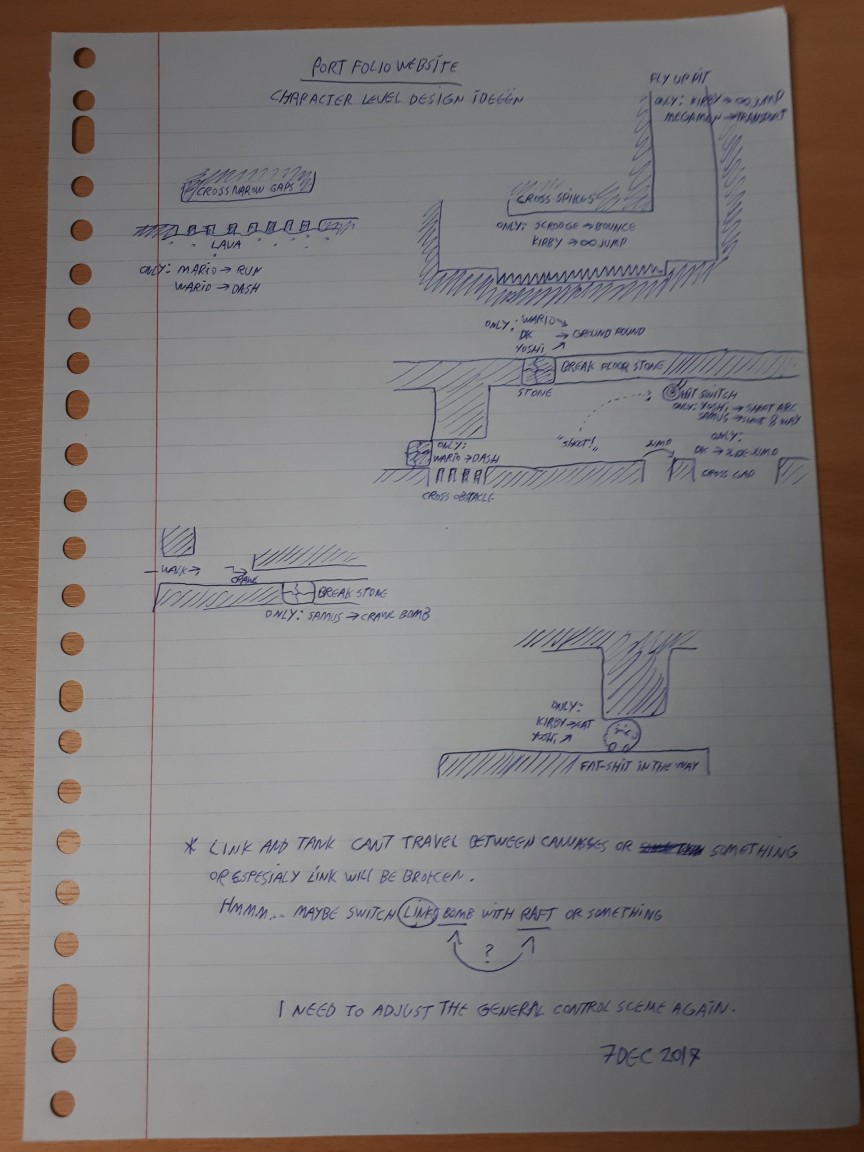 PORTFOLIO WEBSITE
CHARACTER LEVEL DESIGN IDEEËN
FLY UP PIT
ONLY: KIRBY → ∞ JUMP
MEGAMAN → TRANSPORT
CROSS NAROW GAPS
LAVA
ONLY: MARIO → RUN
WARIO → DASH
CROSS SPIKES
ONLY: SCROOGE → BOUNCE
KIRBY → ∞ JUMP
ONLY: WARIO
DK → GROUND POUND
YOSHI
BREAK FLOOR STONE
STONE
HIT SWITCH
ONLY: YOSHI → SHOOT ARC
SAMUS → SHOOT 8 WAY
"SHOOT!"
JUMP
ONLY:
DK → SIDE JUMP
CROSS GAP
ONLY:
WARIO → DASH
CROSS OBSTACLE
WALK →
CRAWL
BREAK STONE
ONLY: SAMUS → CRAWL BOMB
ONLY:
KIRBY → EAT
YOSHI
FAT-SHIT IN THE WAY
* LINK AND TANK CAN'T TRAVEL BETWEEN CANVASSES OR SOMETHING
OR ESPESIALY LINK WILL BE BROKEN.
HMMM... MAYBE SWITCH LINKS BOMB WITH RAFT OR SOMETHING
?
I NEED TO ADJUST THE GENERAL CONTROL SCEME AGAIN.
7 DEC 2017